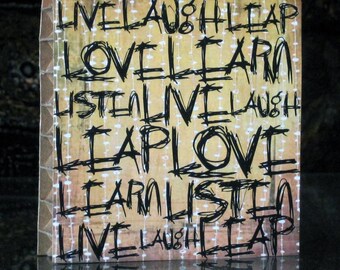 LIVE LAUgH LEAP
LOVE LEARn
LISTEn LIVE LAUgH
LEAP LOVE
LEARn LISTEn
LIVE LAUgH LEAP